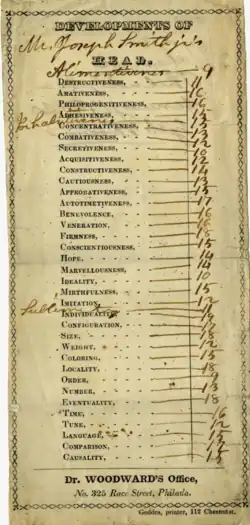 DEVELOPMENTS OF
Mr. Joseph Smith jr's
HEAD.
Alimentiveness 9
DESTRUCTIVENESS, 11
AMATIVENESS, 16
PHILOPROGENITIVENESS, 16
ADHESIVENESS,
Inhabitiveness
CONCENTRATIVENESS,
COMBATIVENESS,
SECRETIVENESS, 12
ACQUISITIVENESS, 10
CONSTRUCTIVENESS, 12
CAUTIOUSNESS, 14
APPROBATIVENESS, 13
AUTOTIMETIVENESS, 17
BENEVOLENCE, 16
VENERATION, 16
FIRMNESS, 18
CONSCIENTIOUSNESS, 15
HOPE, 14
MARVELLOUSNESS, 14
IDEALITY, 10
MIRTHFULNESS, 15
IMITATION, 12
Sublimity
INDIVIDUALITY,
CONFIGURATION,
SIZE, 18
WEIGHT, 12
COLORING, 15
LOCALITY, 18
ORDER,
NUMBER, 13
EVENTUALITY, 18
TIME, 16
TUNE, 12
LANGUAGE, 15
COMPARISON,
CAUSALITY,
Dr. WOODWARD'S Office,
No. 325 Race Street, Philada.
Geddes, printer, 112 Chesnut st.